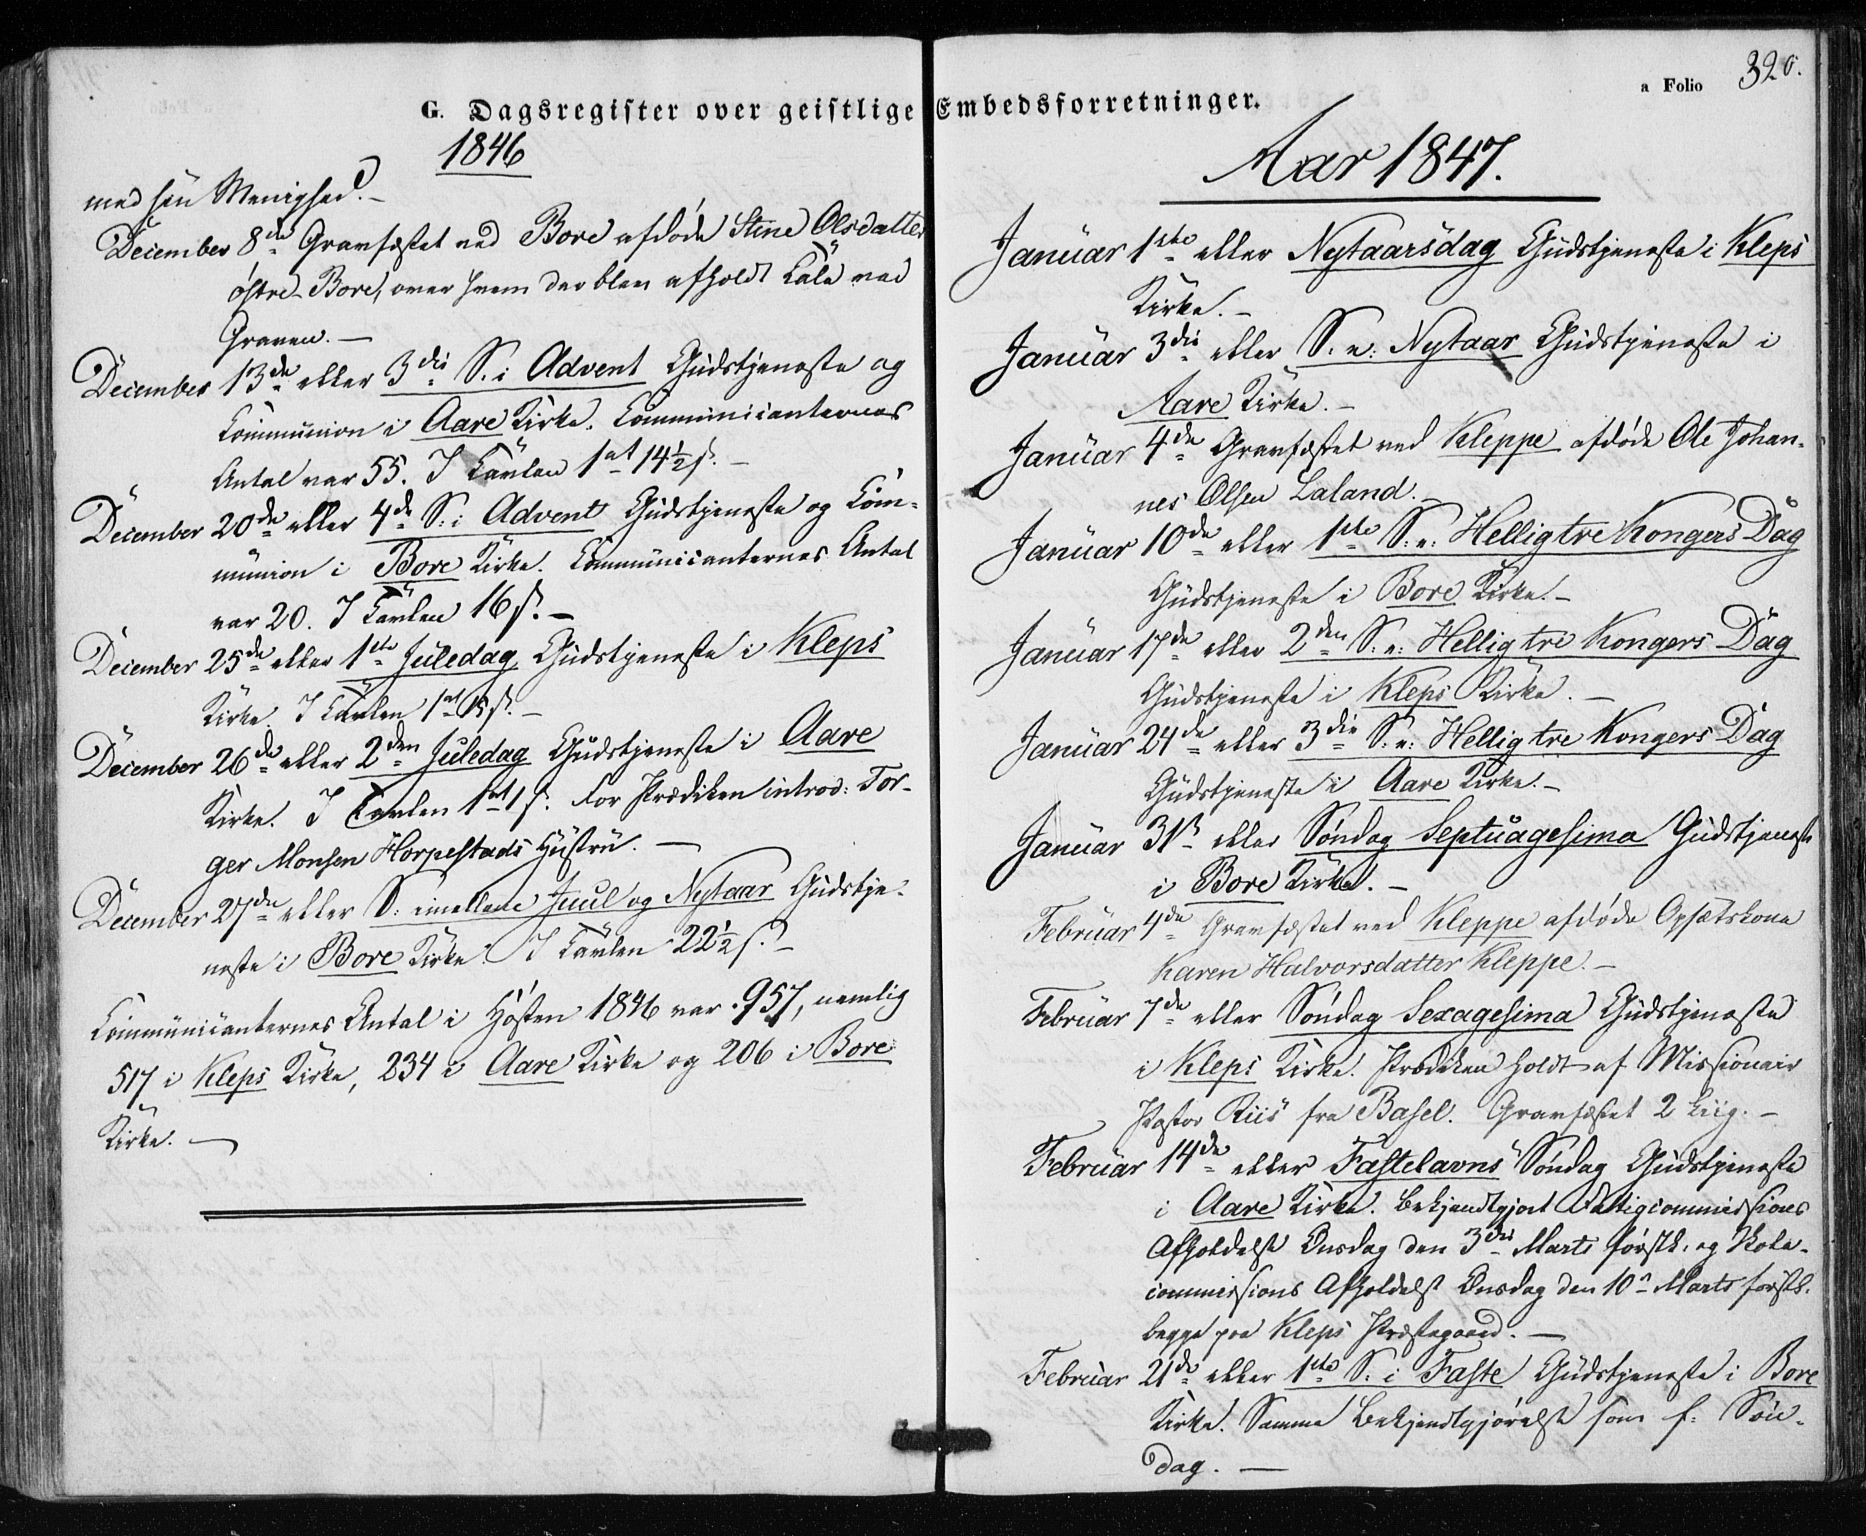 G. Dagsregister over geistlige Embedsforretninger.
a Folio 320.
1846
med sin Menighed. -
December 8de Gravfæstet ved Bore afdøde Stine Olsdatter
østre Bore, over hvem der blev afholdt Tale ved
Graven. -
December 13de eller 3die S. i Advent Gudstjeneste og
Communion i Aare Kirke. Communicanternes
Antal var 55. I Tavlen 1 ort 14½ s. -
December 20de eller 4de S: i Advent Gudstjeneste og Com-
munion i Bore Kirke. Communicanternes Antal
var 20. I Tavlen 16 s. -
December 25de eller 1ste Juledag Gudstjeneste i Kleps
Kirke. I Tavlen 1 ort s. -
December 26de eller 2den Juledag Gudstjeneste i Aare
Kirke. I Tavlen 1 ort 1 s. For Prædiken introd: Tor-
ger Monsen Horpestads Hustru. -
December 27de eller S: imellem Juul og Nytaar Gudstje-
neste i Bore Kirke. I Tavlen 22½ s. -
Communicanternes Antal i Høsten 1846 var 957, nemlig
517 i Kleps Kirke, 234 i Aare Kirke og 206 i Bore
Kirke. -
Aar 1847.
Januar 1ste eller Nytaarsdag Gudstjeneste i Kleps
Kirke. -
Januar 3die eller S. e: Nytaar Gudstjeneste i
Aare Kirke. -
Januar 4de Gravfæstet ved Kleppe afdøde Ole Johan-
nes Olsen Laland. -
Januar 10de eller 1ste S: e: Hellig tre Kongers Dag
Gudstjeneste i Bore Kirke. -
Januar 17de eller 2den S. e: Hellig tre Kongers Dag
Gudstjeneste i Kleps Kirke. -
Januar 24de eller 3die S. e: Hellig tre Kongers Dag
Gudstjeneste i Aare Kirke. -
Januar 31te eller Søndag Septuagesima Gudstjeneste
i Bore Kirke. -
Februar 4de Gravfæstet ved Kleppe afdøde Opsætskone
Karen Halvorsdatter Kleppe. -
Februar 7de eller Søndag Sexagesima Gudstjeneste
i Kleps Kirke. Prædiken holdt af Missionair
Pastor Riis fra Basel. Gravfæstet 2 Liig. -
Februar 14de eller Fastelavns Søndag Gudstjeneste
i Aare Kirke. Bekjendtgjort Fattigcommissions
Afholdelse Onsdag den 3die Marts førstk. og Skole-
commissions Afholdelse Onsdag den 10de Marts førstk.
begge paa Kleps Præstegaard. -
Februar 21de eller 1ste S. i Faste Gudstjeneste i Bore
Kirke. Samme Bekjendtgjørelse som f: Søn-
dag. -